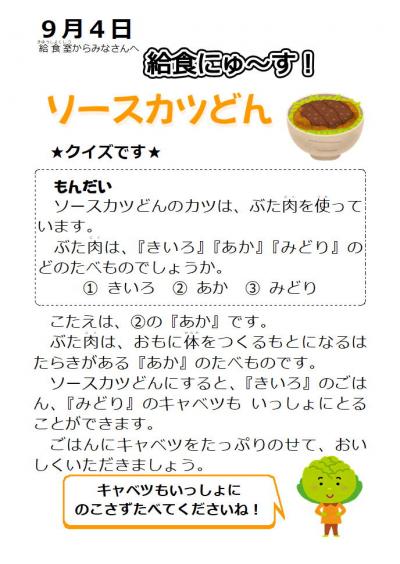 ９月４日
給食室からみなさんへ
給食にゅ～す！
ソースカツどん
★クイズです★
もんだい
ソースカツどんのカツは、ぶた肉を使って
います。
ぶた肉は、『きいろ』『あか』『みどり』の
どのたべものでしょうか。
① きいろ　② あか　③ みどり
こたえは、②の『あか』です。
ぶた肉は、おもに体をつくるもとになるは
たらきがある『あか』のたべものです。
ソースカツどんにすると、『きいろ』のごは
ん、『みどり』のキャベツも いっしょにとる
ことができます。
ごはんにキャベツをたっぷりのせて、おい
しくいただきましょう。
キャベツもいっしょに
のこさずたべてくださいね！